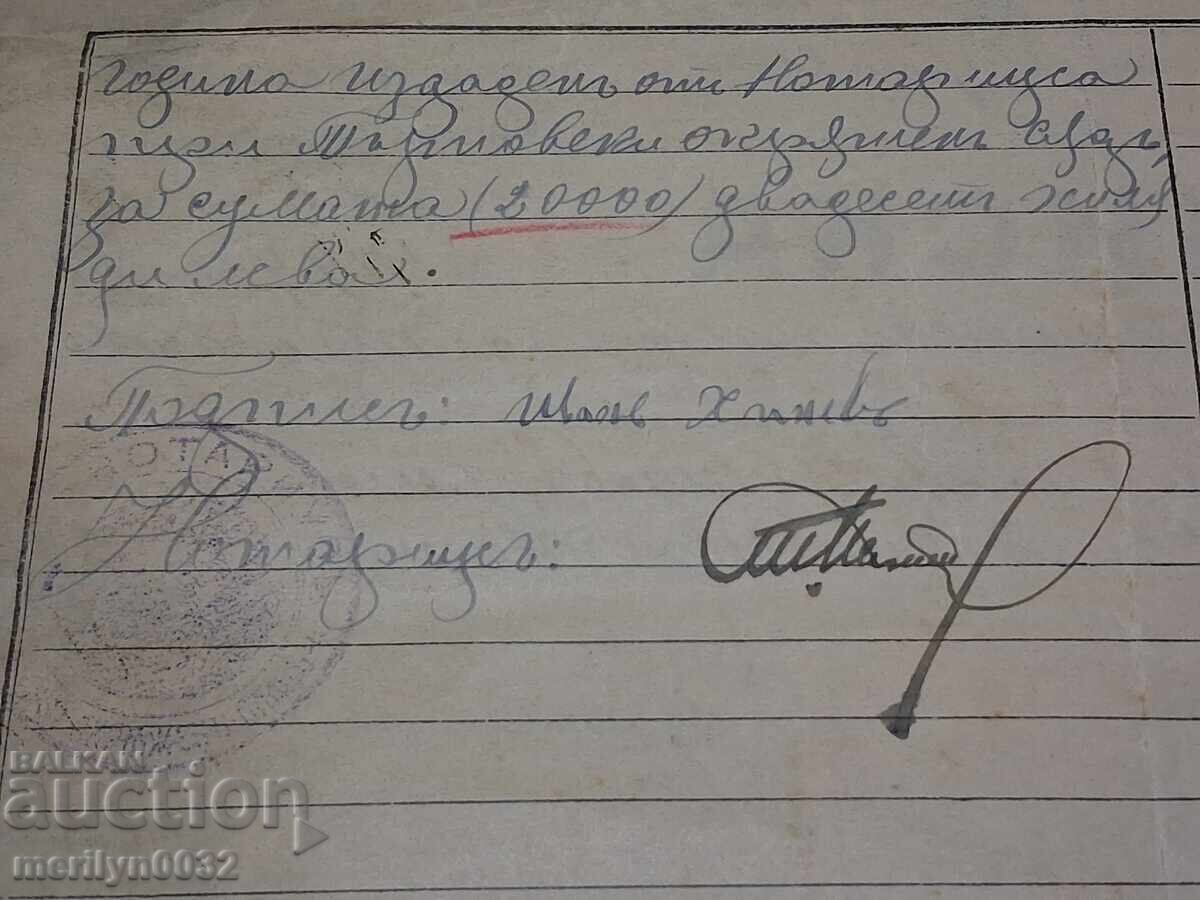 година издаденъ отъ Нотариуса
при Търновски окръженъ съдъ,
за сумата (20000) двадесет хиля
ди лева.
Подписъ: Иванъ
НОТАР
Нотариусъ:
BALKAN
auction
merilyn0032